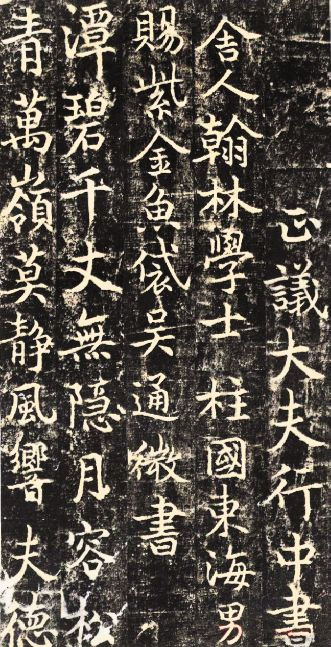 正議大夫行中書
舍人翰林學士柱國東海男
賜紫金魚袋吴通微書
潭碧千丈無隐月容松
青萬嶺莫静風響夫德